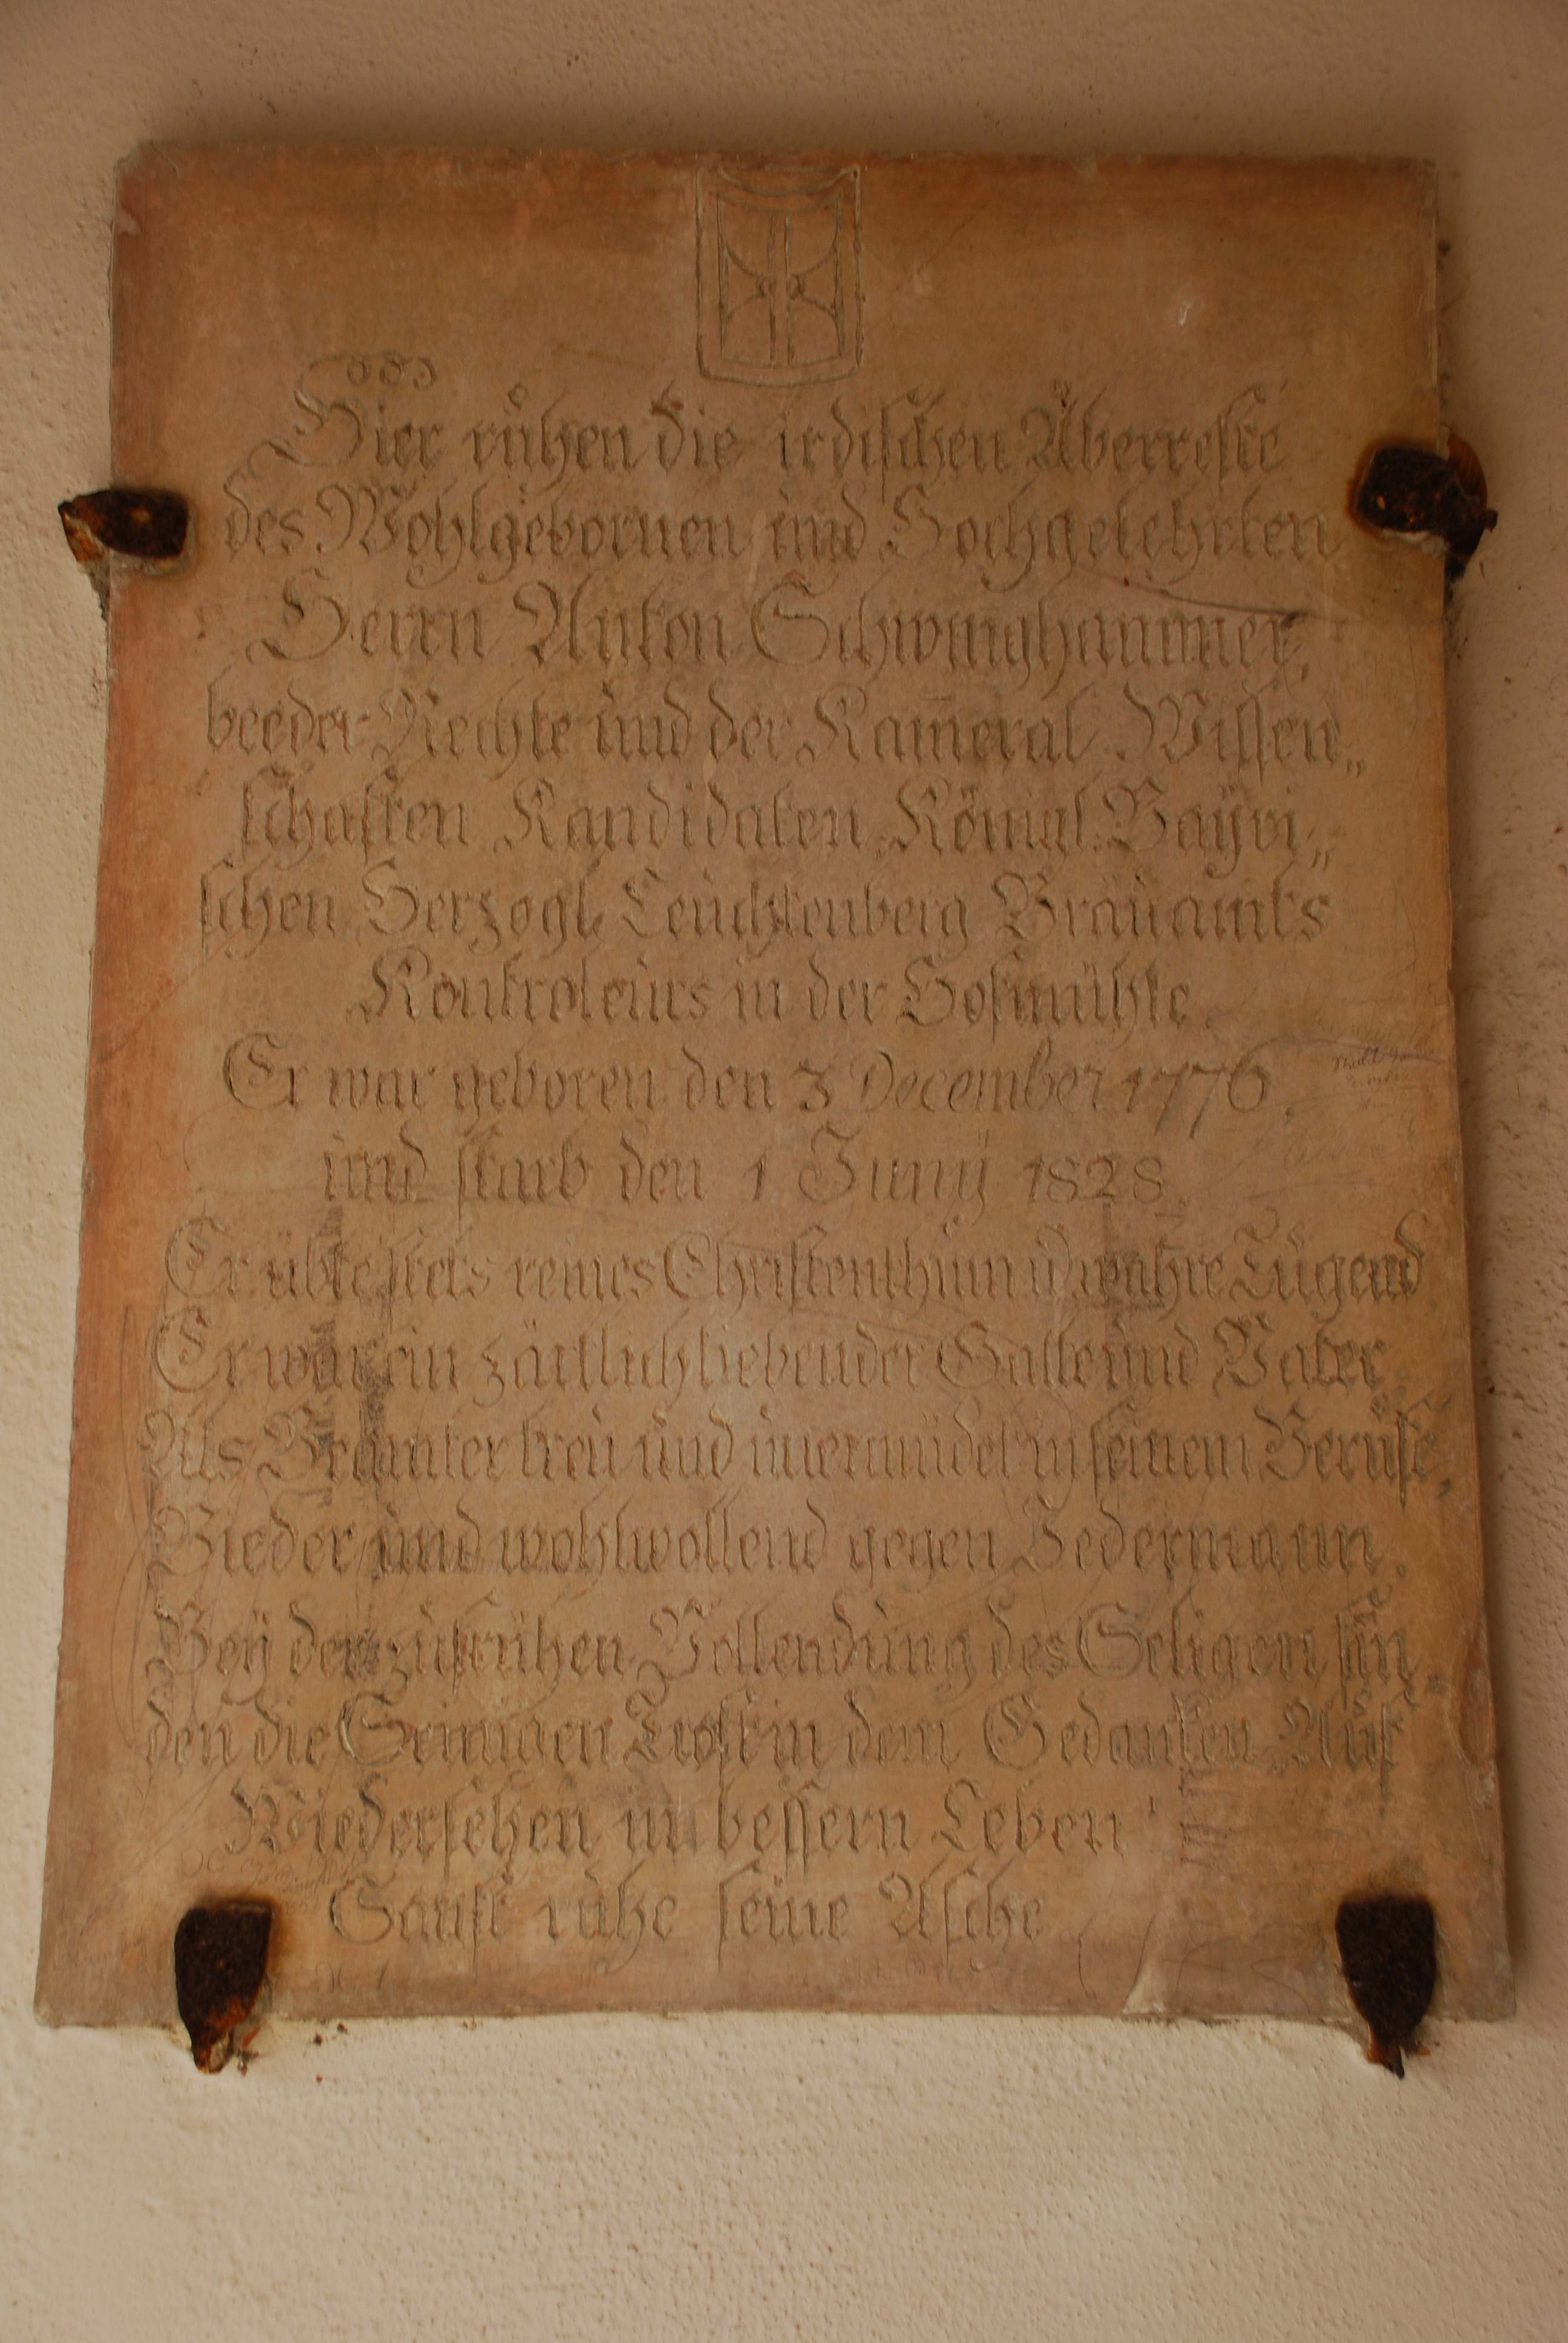 Hier ruhen die irdischen Überreste
des Wohlgebornen und Hochgelehrten
Herrn Anton Schwinghammer,
beeder Rechte und der Kam̅eral Wissen„
schaften Kandidaten, Königl. Bayri„
schen Herzogl. Leuchtenberg Bräuamts
Kontroleurs in der Hofmühle.
Er war geboren den 3 December 1776.
und starb den 1 Juny 1828.
Er übte stets reines Christenthum u wahre Tugend,
Er war ein zärtlich liebender Gatte und Vater
Als Beamter treu und unermüdet in seinem Berufe,
Bieder und wohlwollend gegen Jedermann.
Bey der zu frühen Vollendung des Seligen fin„
den die Seinigen Trost in dem Gedanken „Auf
Wiedersehen im bessern Leben"
Sanft ruhe seine Asche